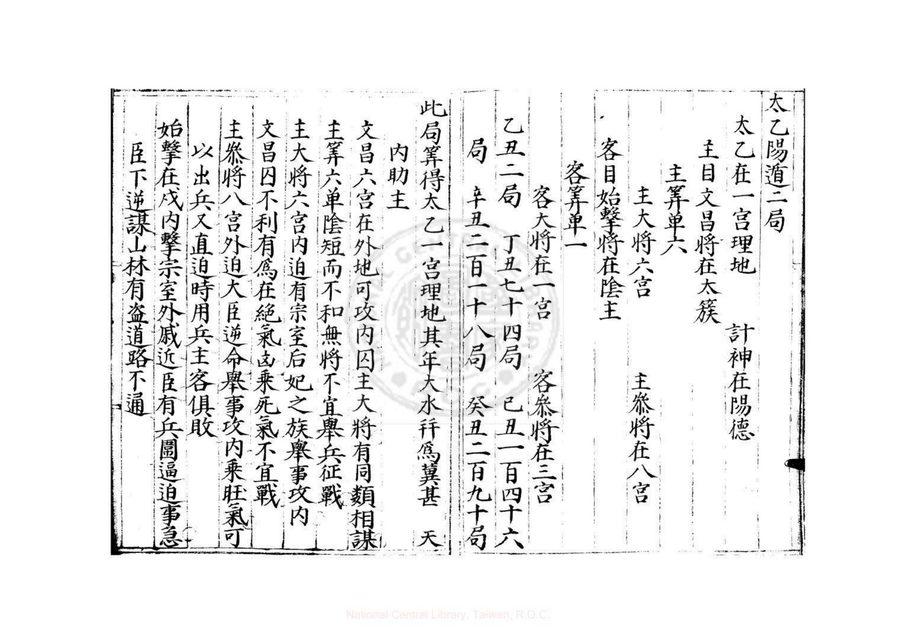 太乙陽遁二局
太乙在一宮理地　計神在陽德
主目文昌將在太簇
主筭單六
主大將六宮　主叅將在八宮
客目始擊將在陰主
客筭單一
客大將在一宮　客叅將在三宮
乙丑二局　丁丑七十四局　己丑一百四十六
局　辛丑二百一十八局　癸丑二百九十局
此局筭得太乙一宮理地其年大水幷爲冀甚　天
內助主
文昌六宮在外地可攻內囚主大將有同類相謀
主筭六单陰短而不和無將不宜舉兵征戰
主大將六宮內迫有宗室后妃之族舉事攻內
文昌囚不利有爲在絕氣凶乘死氣不宜戰
主叅將八宮外迫大臣逆命舉事攻內乘旺氣可
以出兵又直迫時用兵主客俱敗
始擊在戌內擊宗室外戚近臣有兵圖逼迫事急
臣下逆謀山林有盗道路不通
National Central Library, Taiwan, R.O.C.